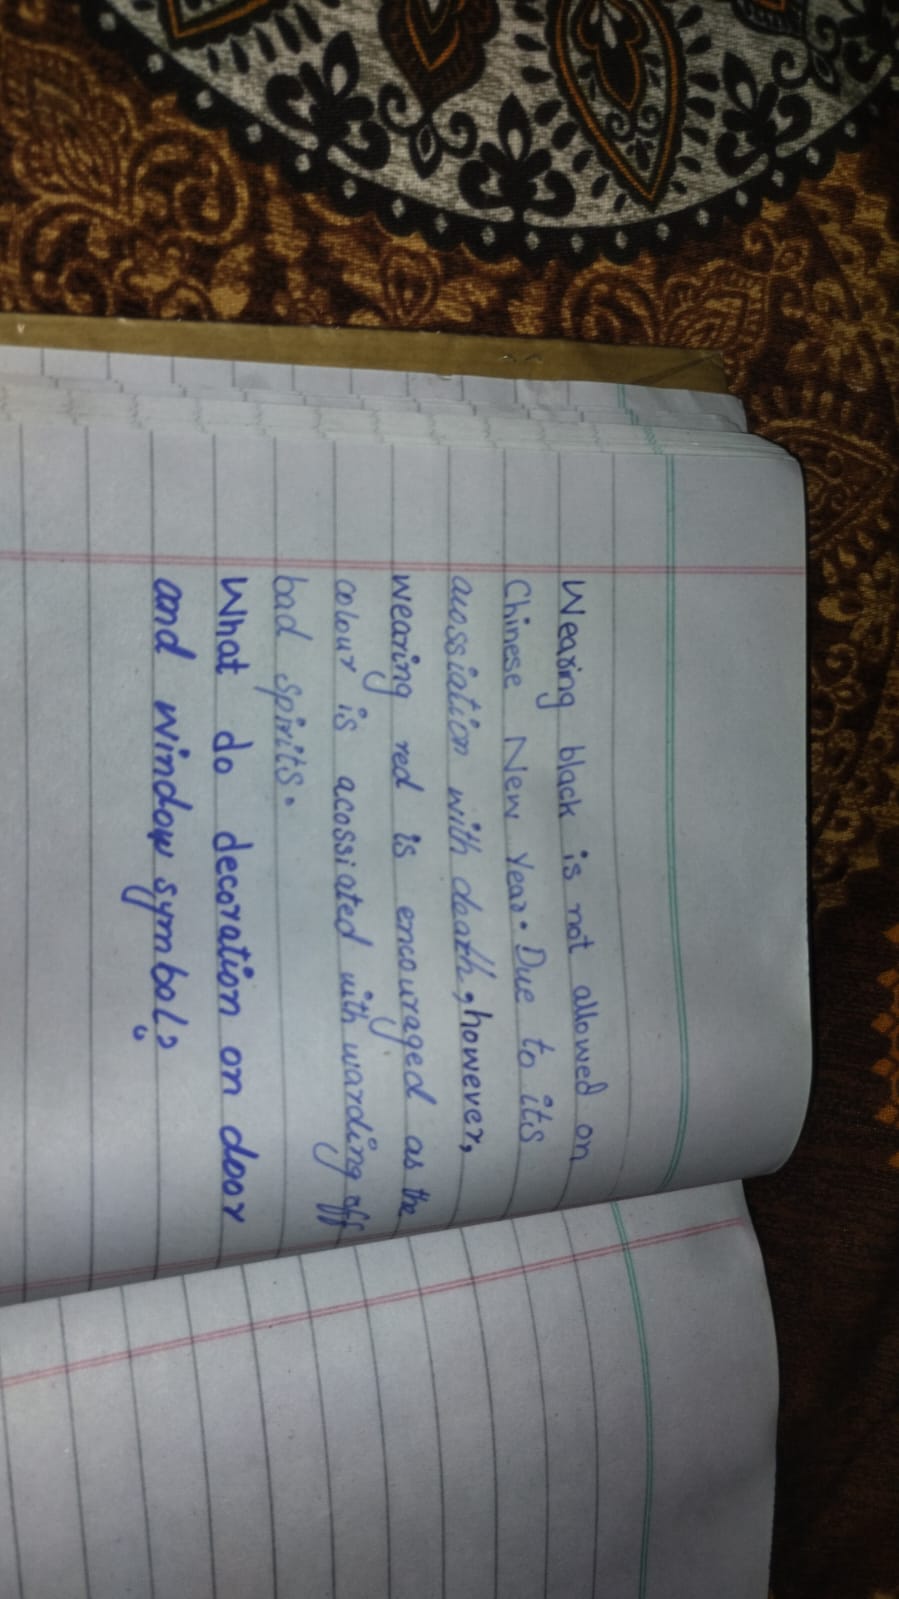 Wearing black is not allowed on
Chinese New Year. Due to its
acossiation with death, however,
wearing red is encouraged as the
colour is acossiated with warding off
bad spirits.
What do decoration on door
and window symbol?